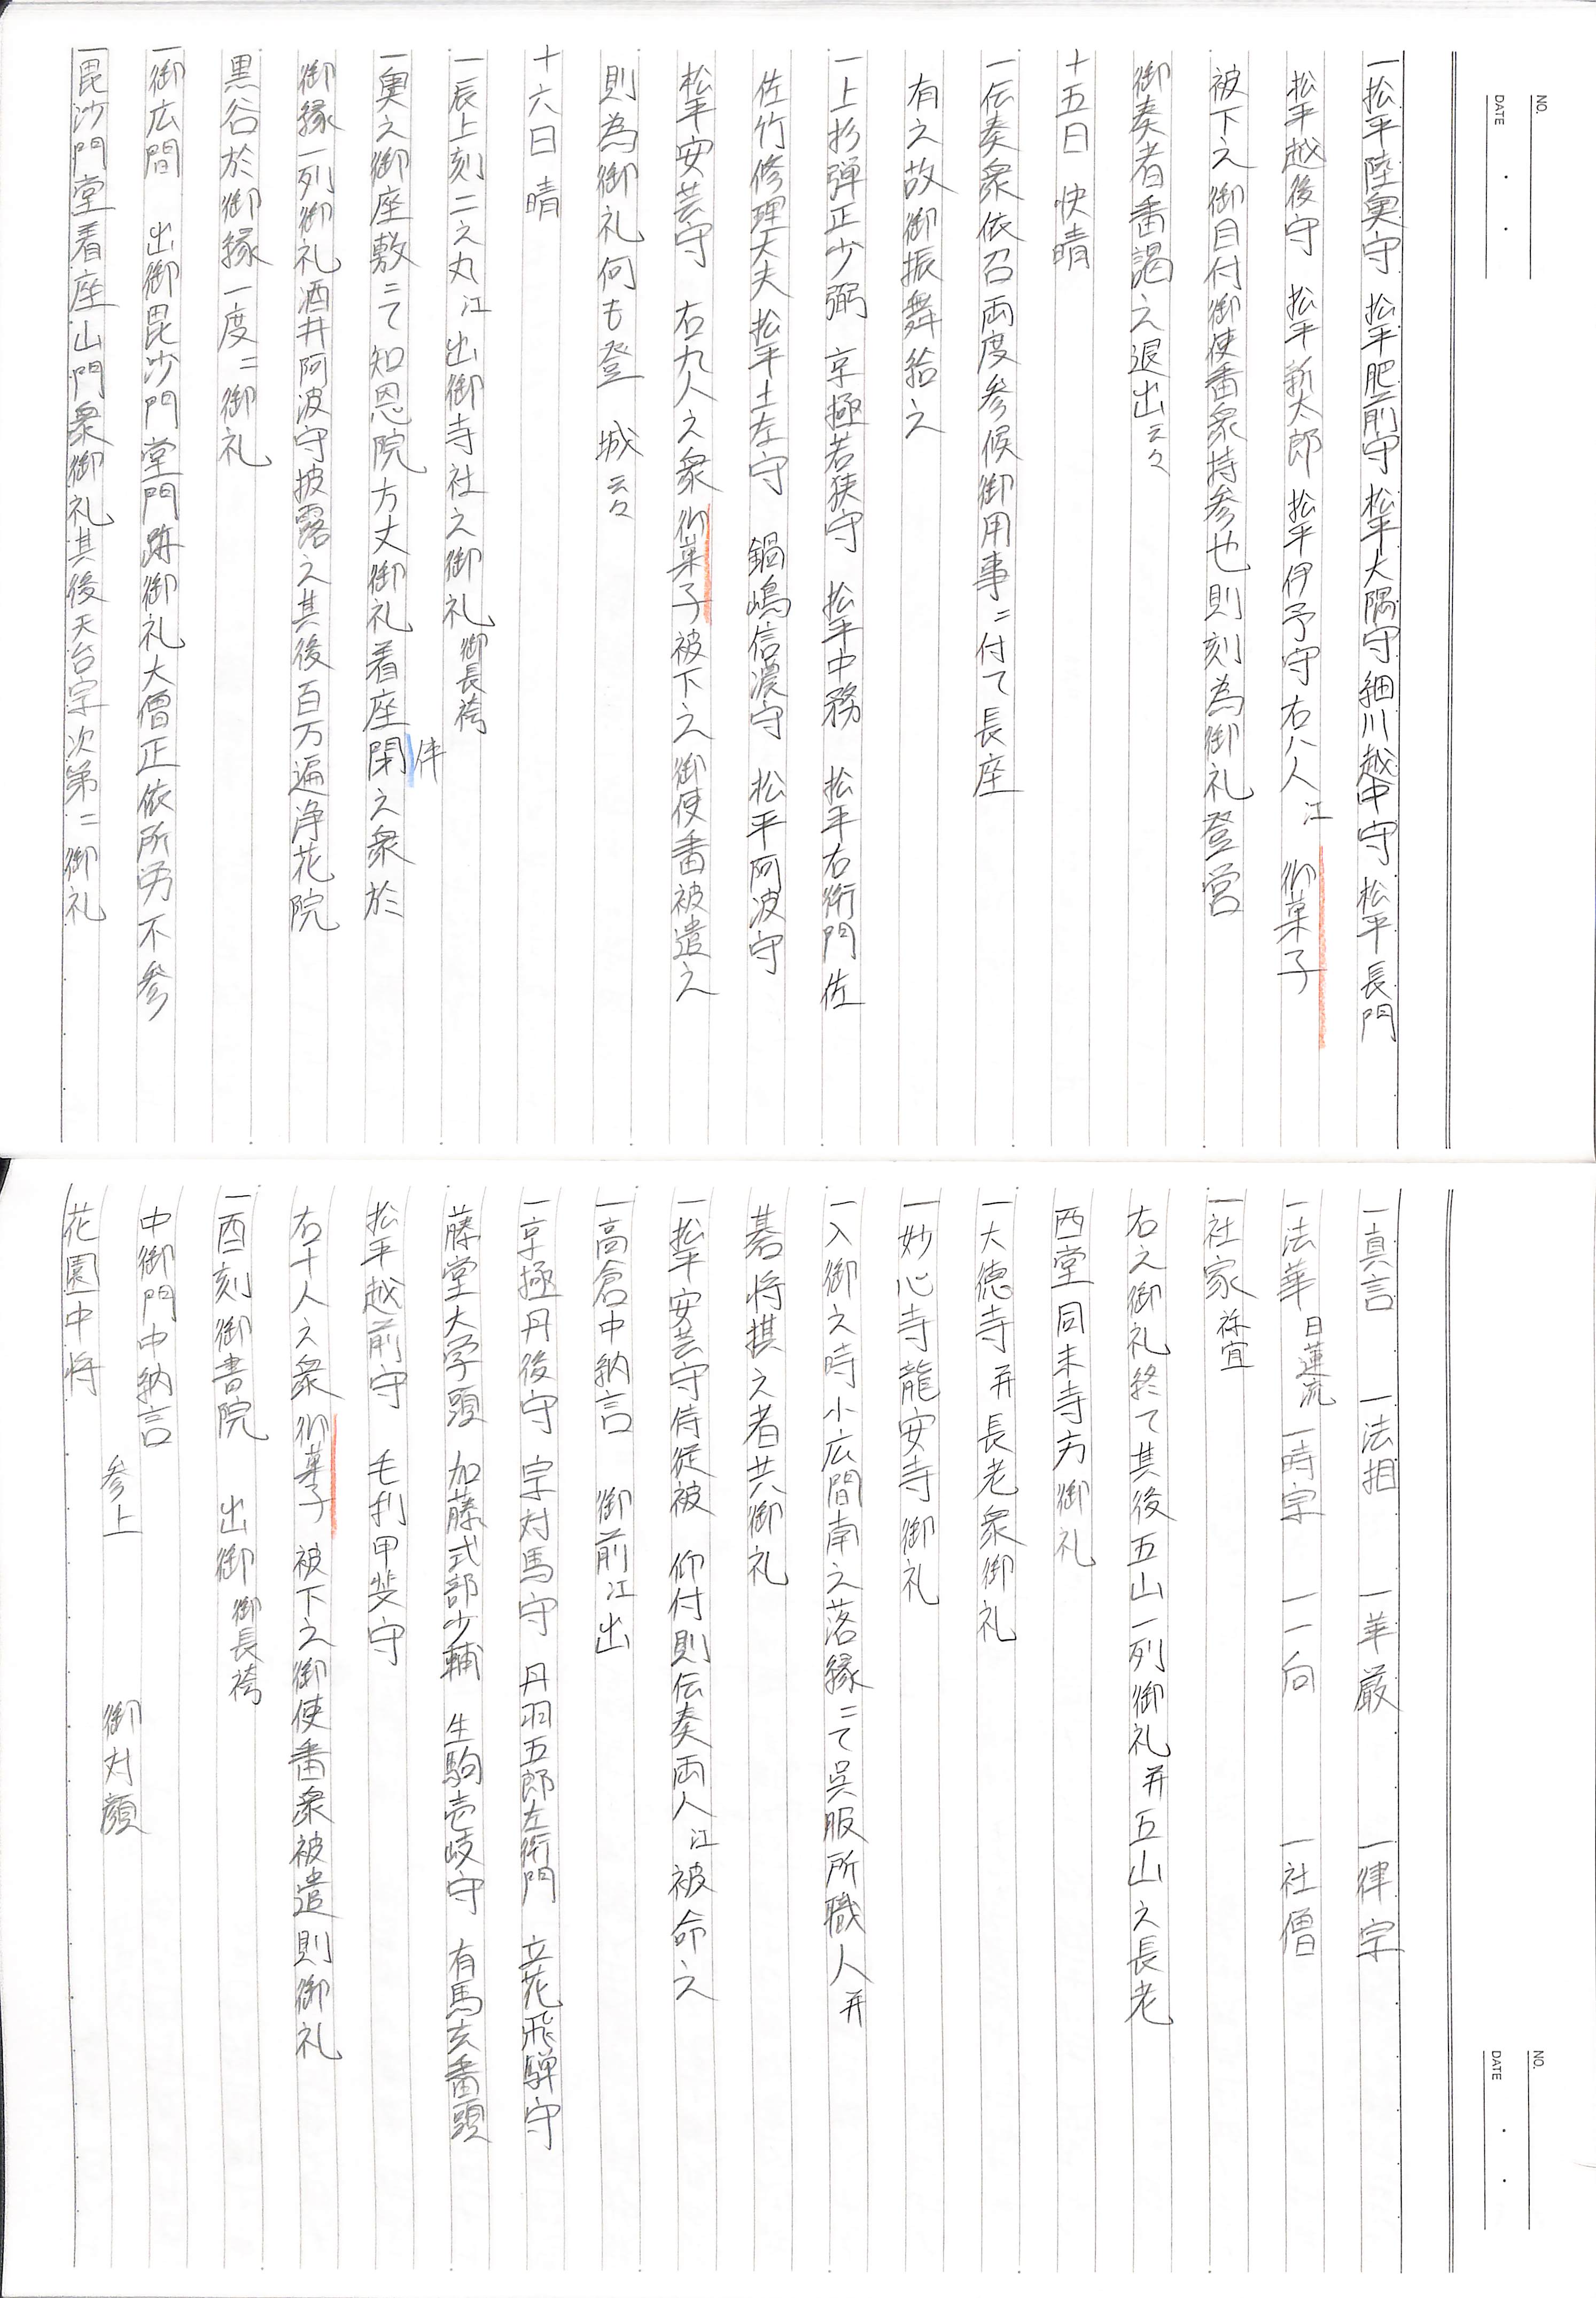 NO.
DATE
一松平陸奥守 松平肥前守 松平大隅守 細川越中守 松平長門
松平越後守 松平新太郎 松平伊予守右八人江 御菓子
被下之御目付御使番衆持参也則刻為御礼登営
御奏者番謁之退出云々
十五日 快晴
一伝奏衆依召両度参候御用事ニ付て長座
有之故御振舞給之
一上杉弾正少弼 京極若狭守 松平中務 松平右衛門佐
佐竹修理大夫 松平土左守 鍋嶋信濃守 松平阿波守
松平安芸守 右九人之衆御菓子被下之御使番被遣之
則為御礼何も登 城云々
十六日 晴
一辰上刻二之丸江出御寺社之御礼御長袴
一奥之御座敷ニて知恩院方丈御礼着座閑之衆於
伴
御縁一列御礼酒井阿波守披露之其後百万遍浄花院
黒谷於御縁一度ニ御礼
一御広間 出御毘沙門堂門跡御礼大僧正依所労不参
一毘沙門堂着座山門衆御礼其後天台宗次第ニ御礼
NO.
DATE
一真言 一法相 一華厳 一律宗
一法華 日蓮流 一時宗 一一向 一社僧
一社家 祢宜
右之御礼終て其後五山一列御礼并五山之長老
西堂同末寺方御礼
一大徳寺并長老衆御礼
一妙心寺龍安寺御礼
一入御之時小広間南之落縁ニて呉服所職人并
碁将棋之者共御礼
一松平安芸守侍従被 仰付則伝奏両人江被命之
一高倉中納言 御前江出
一京極丹後守 宗対馬守 丹羽五郎左衛門 立花飛騨守
藤堂大学頭 加藤式部少輔 生駒壱岐守 有馬玄番頭
松平越前守 毛利甲斐守
右十人之衆御菓子被下之御使番衆被遣則御礼
一酉刻御書院 出御御長袴
中御門中納言
参上 御対顔
花園中将